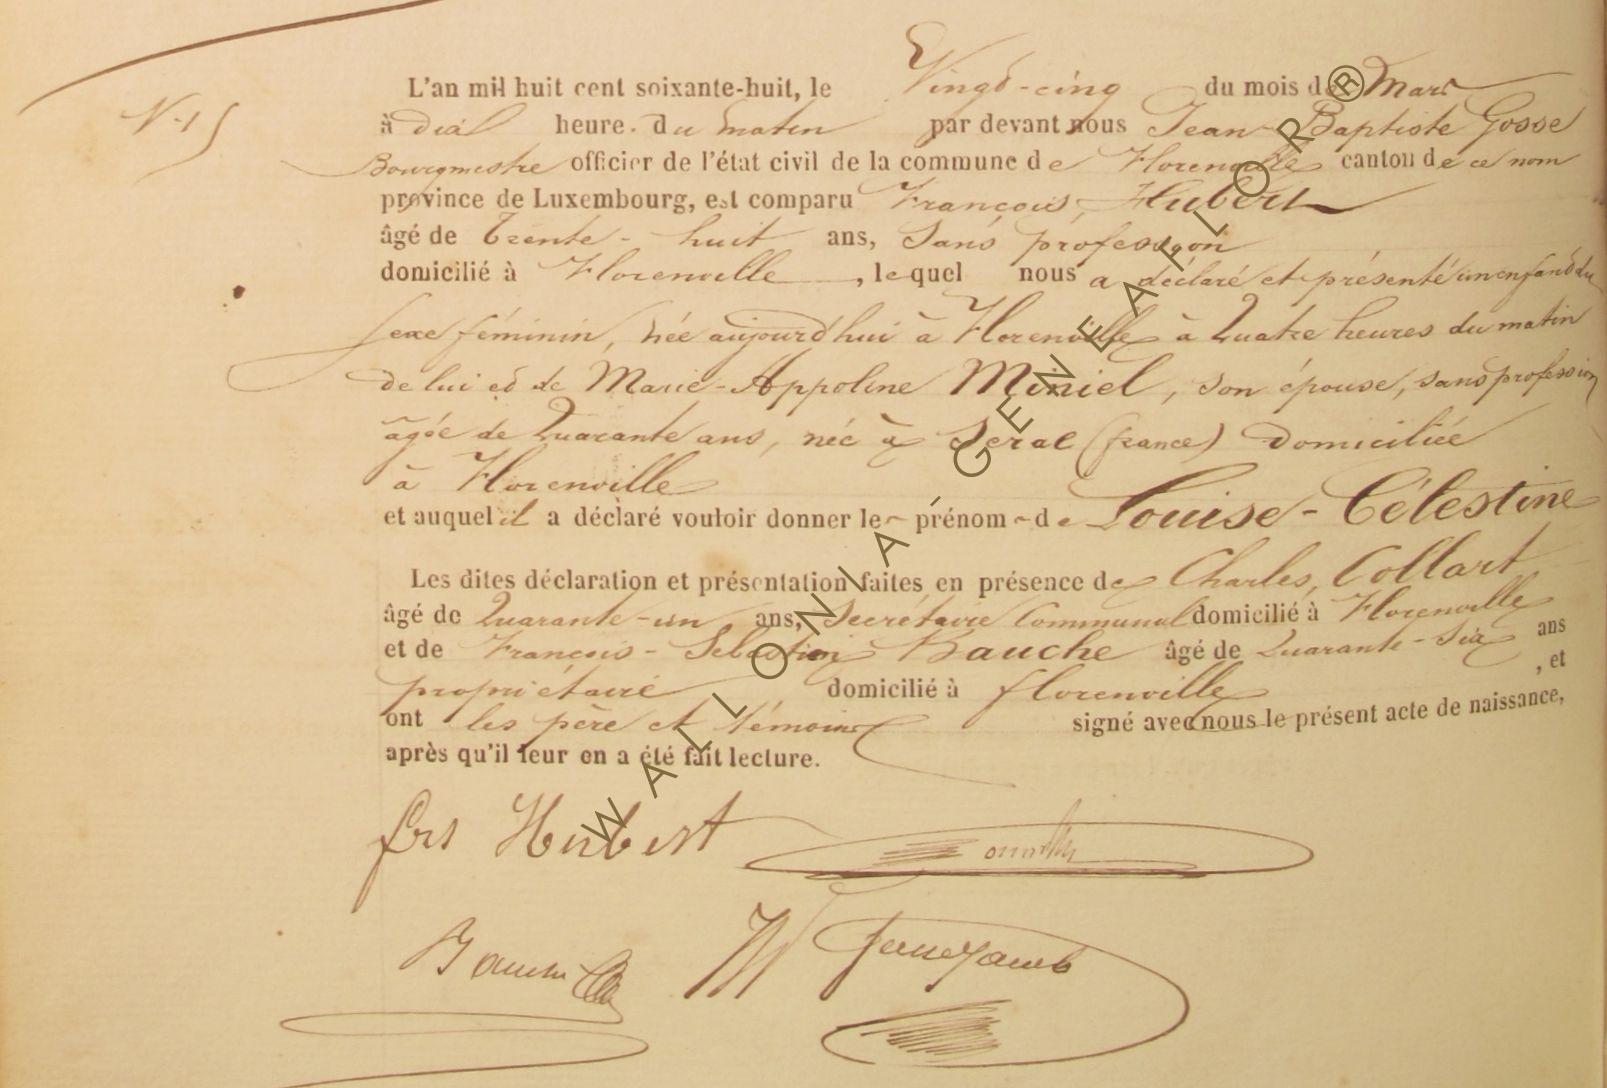 N. 15
L'an mil huit cent soixante-huit, le Vingt-cinq du mois de Mars
à dix heure. du matin par devant nous Jean-Baptiste Gosse
Bourgmestre officier de l'état civil de la commune de Florenville canton de ce nom
province de Luxembourg, est comparu François, Hubert
âgé de Trente-huit ans, Sans profession
domicilié à Florenville, lequel nous a déclaré et présenté un enfant du
sexe féminin, née aujourd'hui à Florenville à Quatre heures du matin
de lui et de Marie-Appoline Miniel, son épouse, sans profession
âgée de Quarante ans, née à (france) Domiciliée
à Florenville
et auquel il a déclaré vouloir donner le prénom de Louise-Célestine
Les dites déclaration et présentation faites en présence de Charles, Collart
âgé de Quarante-un ans, Secrétaire Communal domicilié à Florenville
et de François-Sébastien Bauche âgé de Quarante-Six ans
propriétaire domicilié à florenville, et
ont les père et témoins signé avec nous le présent acte de naissance,
après qu'il leur en a été fait lecture.
frs Hubert
WALLONIA-GENEAFLOR®